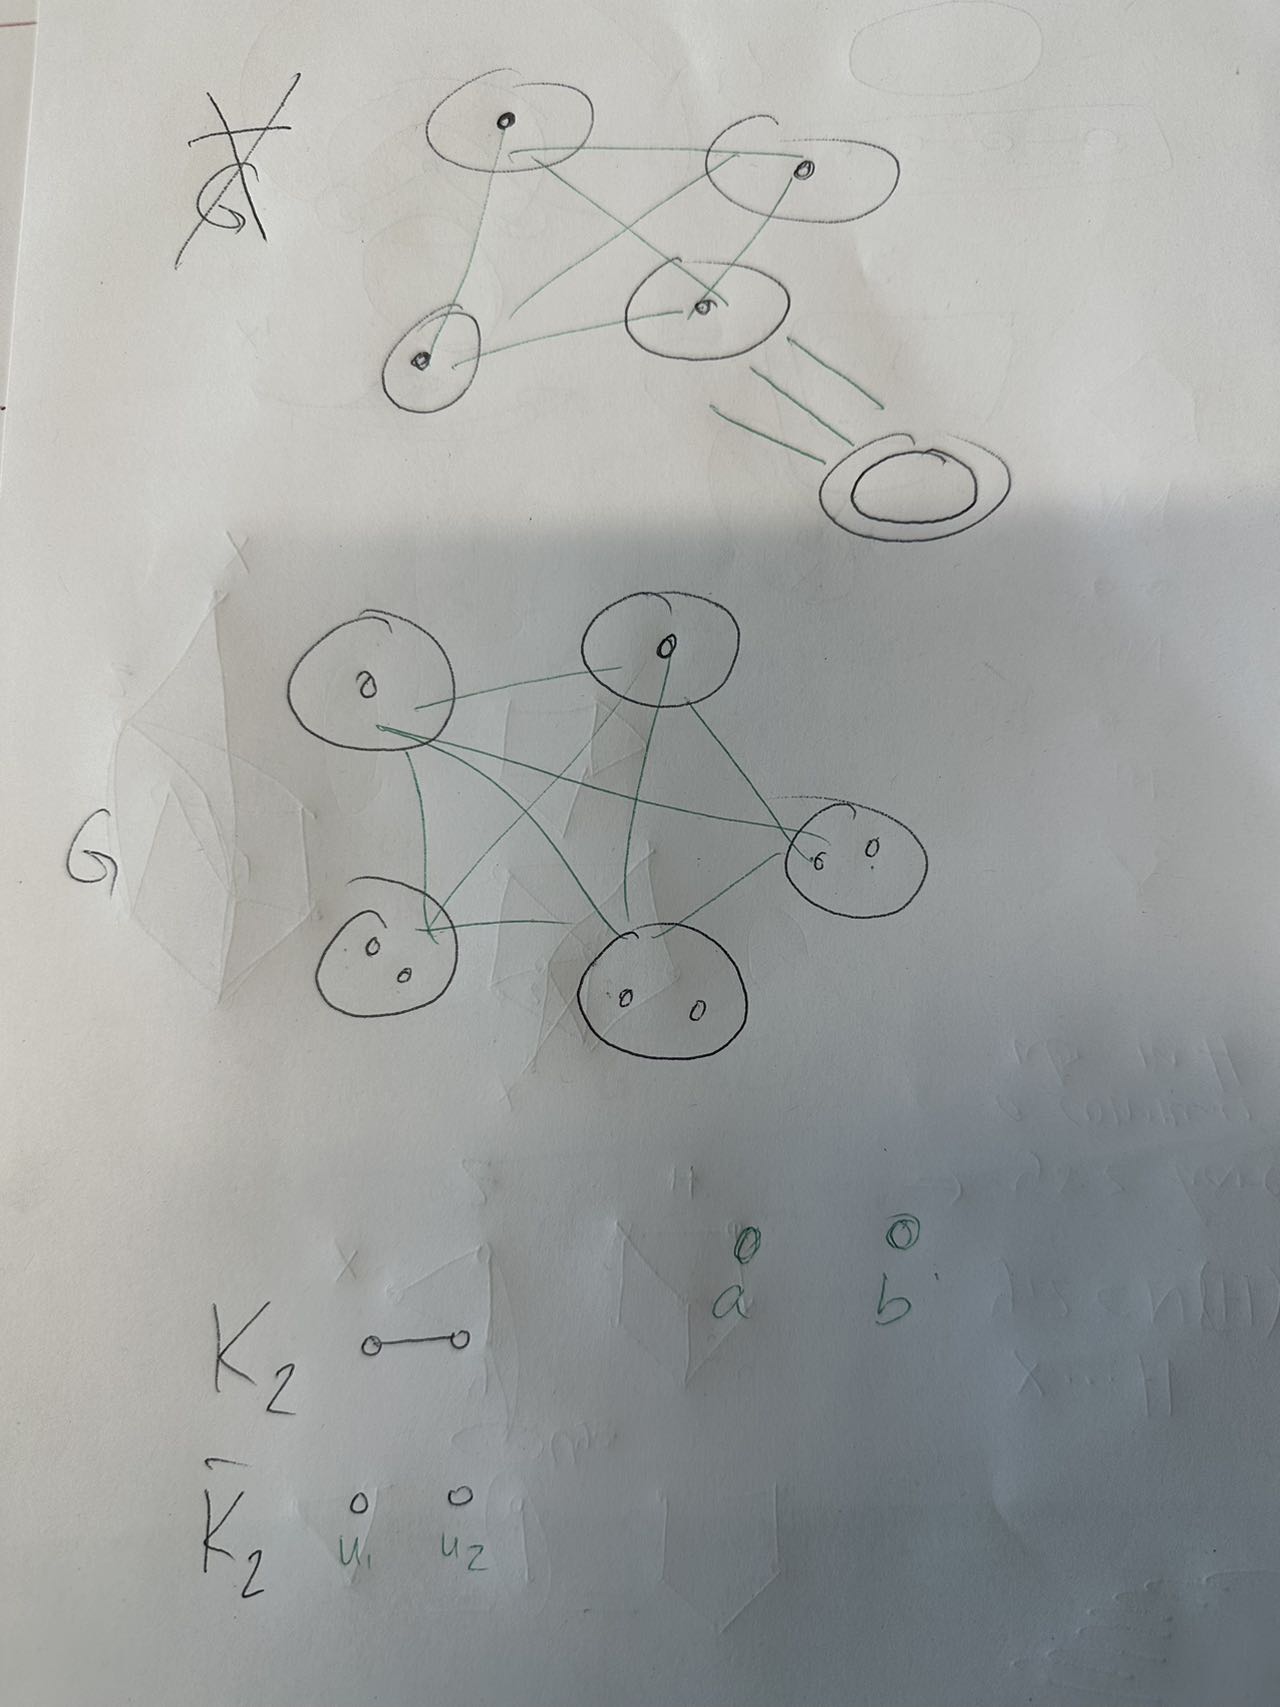 G
a b
K₂
K̄₂
u₁ u₂